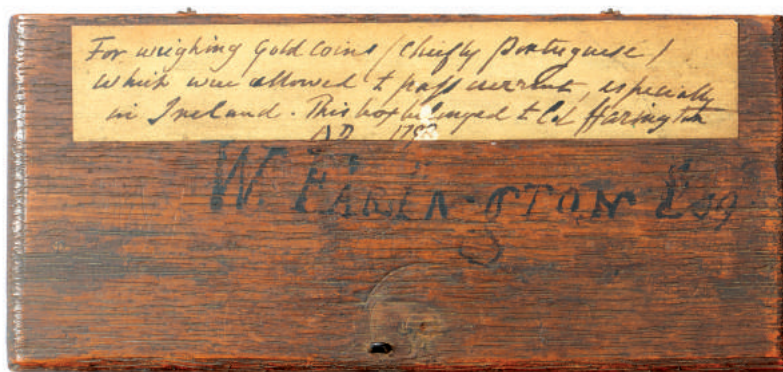 For weighing Gold Coins (chiefly Portuguese)
which were allowed to pass current, especially
in Ireland. This box belonged to Col ffarington
AD 1792
W. FARINGTON Esq